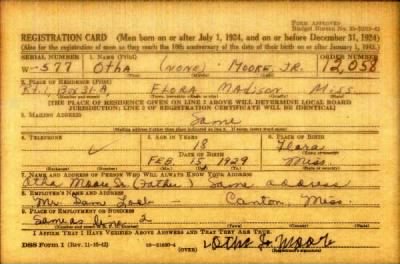 FORM APPROVED
REGISTRATION CARD (Men born on or after July 1, 1924, and on or before December 31, 1924)
(Also for the registration of men as they reach the 18th anniversary of the date of their birth on or after January 1, 1925.)
SERIAL NUMBER 1. NAME (Print) ORDER NUMBER
W-577 OTHA (NONE) MOORE, JR. 12,058
(First) (Middle) (Last)
2. PLACE OF RESIDENCE (Print)
RT. 1, BOX 31-A, FLORA MADISON MISS.
[THE PLACE OF RESIDENCE GIVEN ON LINE 2 ABOVE WILL DETERMINE LOCAL BOARD
JURISDICTION; LINE 2 OF REGISTRATION CERTIFICATE WILL BE IDENTICAL]
3. MAILING ADDRESS
Same
[Mailing address if other than place indicated on line 2. If same, insert word same]
4. TELEPHONE 5. AGE IN YEARS 6. PLACE OF BIRTH
18 Flora
DATE OF BIRTH
FEB. 15 1929 Miss.
(Exchange) (Number) (Mo.) (Day) (Yr.) (State or country)
7. NAME AND ADDRESS OF PERSON WHO WILL ALWAYS KNOW YOUR ADDRESS
Otha Moore Sr. (Father) Same address
8. EMPLOYER'S NAME AND ADDRESS
Mr. Sam Loeb – Canton, Miss.
9. PLACE OF EMPLOYMENT OR BUSINESS
Same as line 2
I AFFIRM THAT I HAVE VERIFIED ABOVE ANSWERS AND THAT THEY ARE TRUE.
DSS Form 1 (Rev. 11-16-42) (OVER) Otha Jr Moore